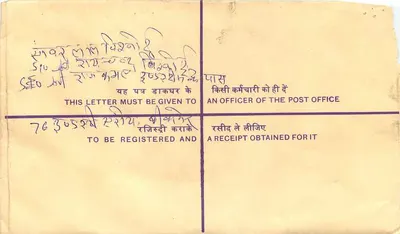 संवर लाल विश्नोई
S/o श्री राम चन्द्र विश्नोई
C/o श्री राज कमल इण्डस्ट्रीज के पास
यह पत्र डाकघर के किसी कर्मचारी को ही दें
THIS LETTER MUST BE GIVEN TO AN OFFICER OF THE POST OFFICE
76 इण्डस्ट्री एरीया, बीकानेर
रजिस्ट्री कराके रसीद ले लीजिए
TO BE REGISTERED AND A RECEIPT OBTAINED FOR IT